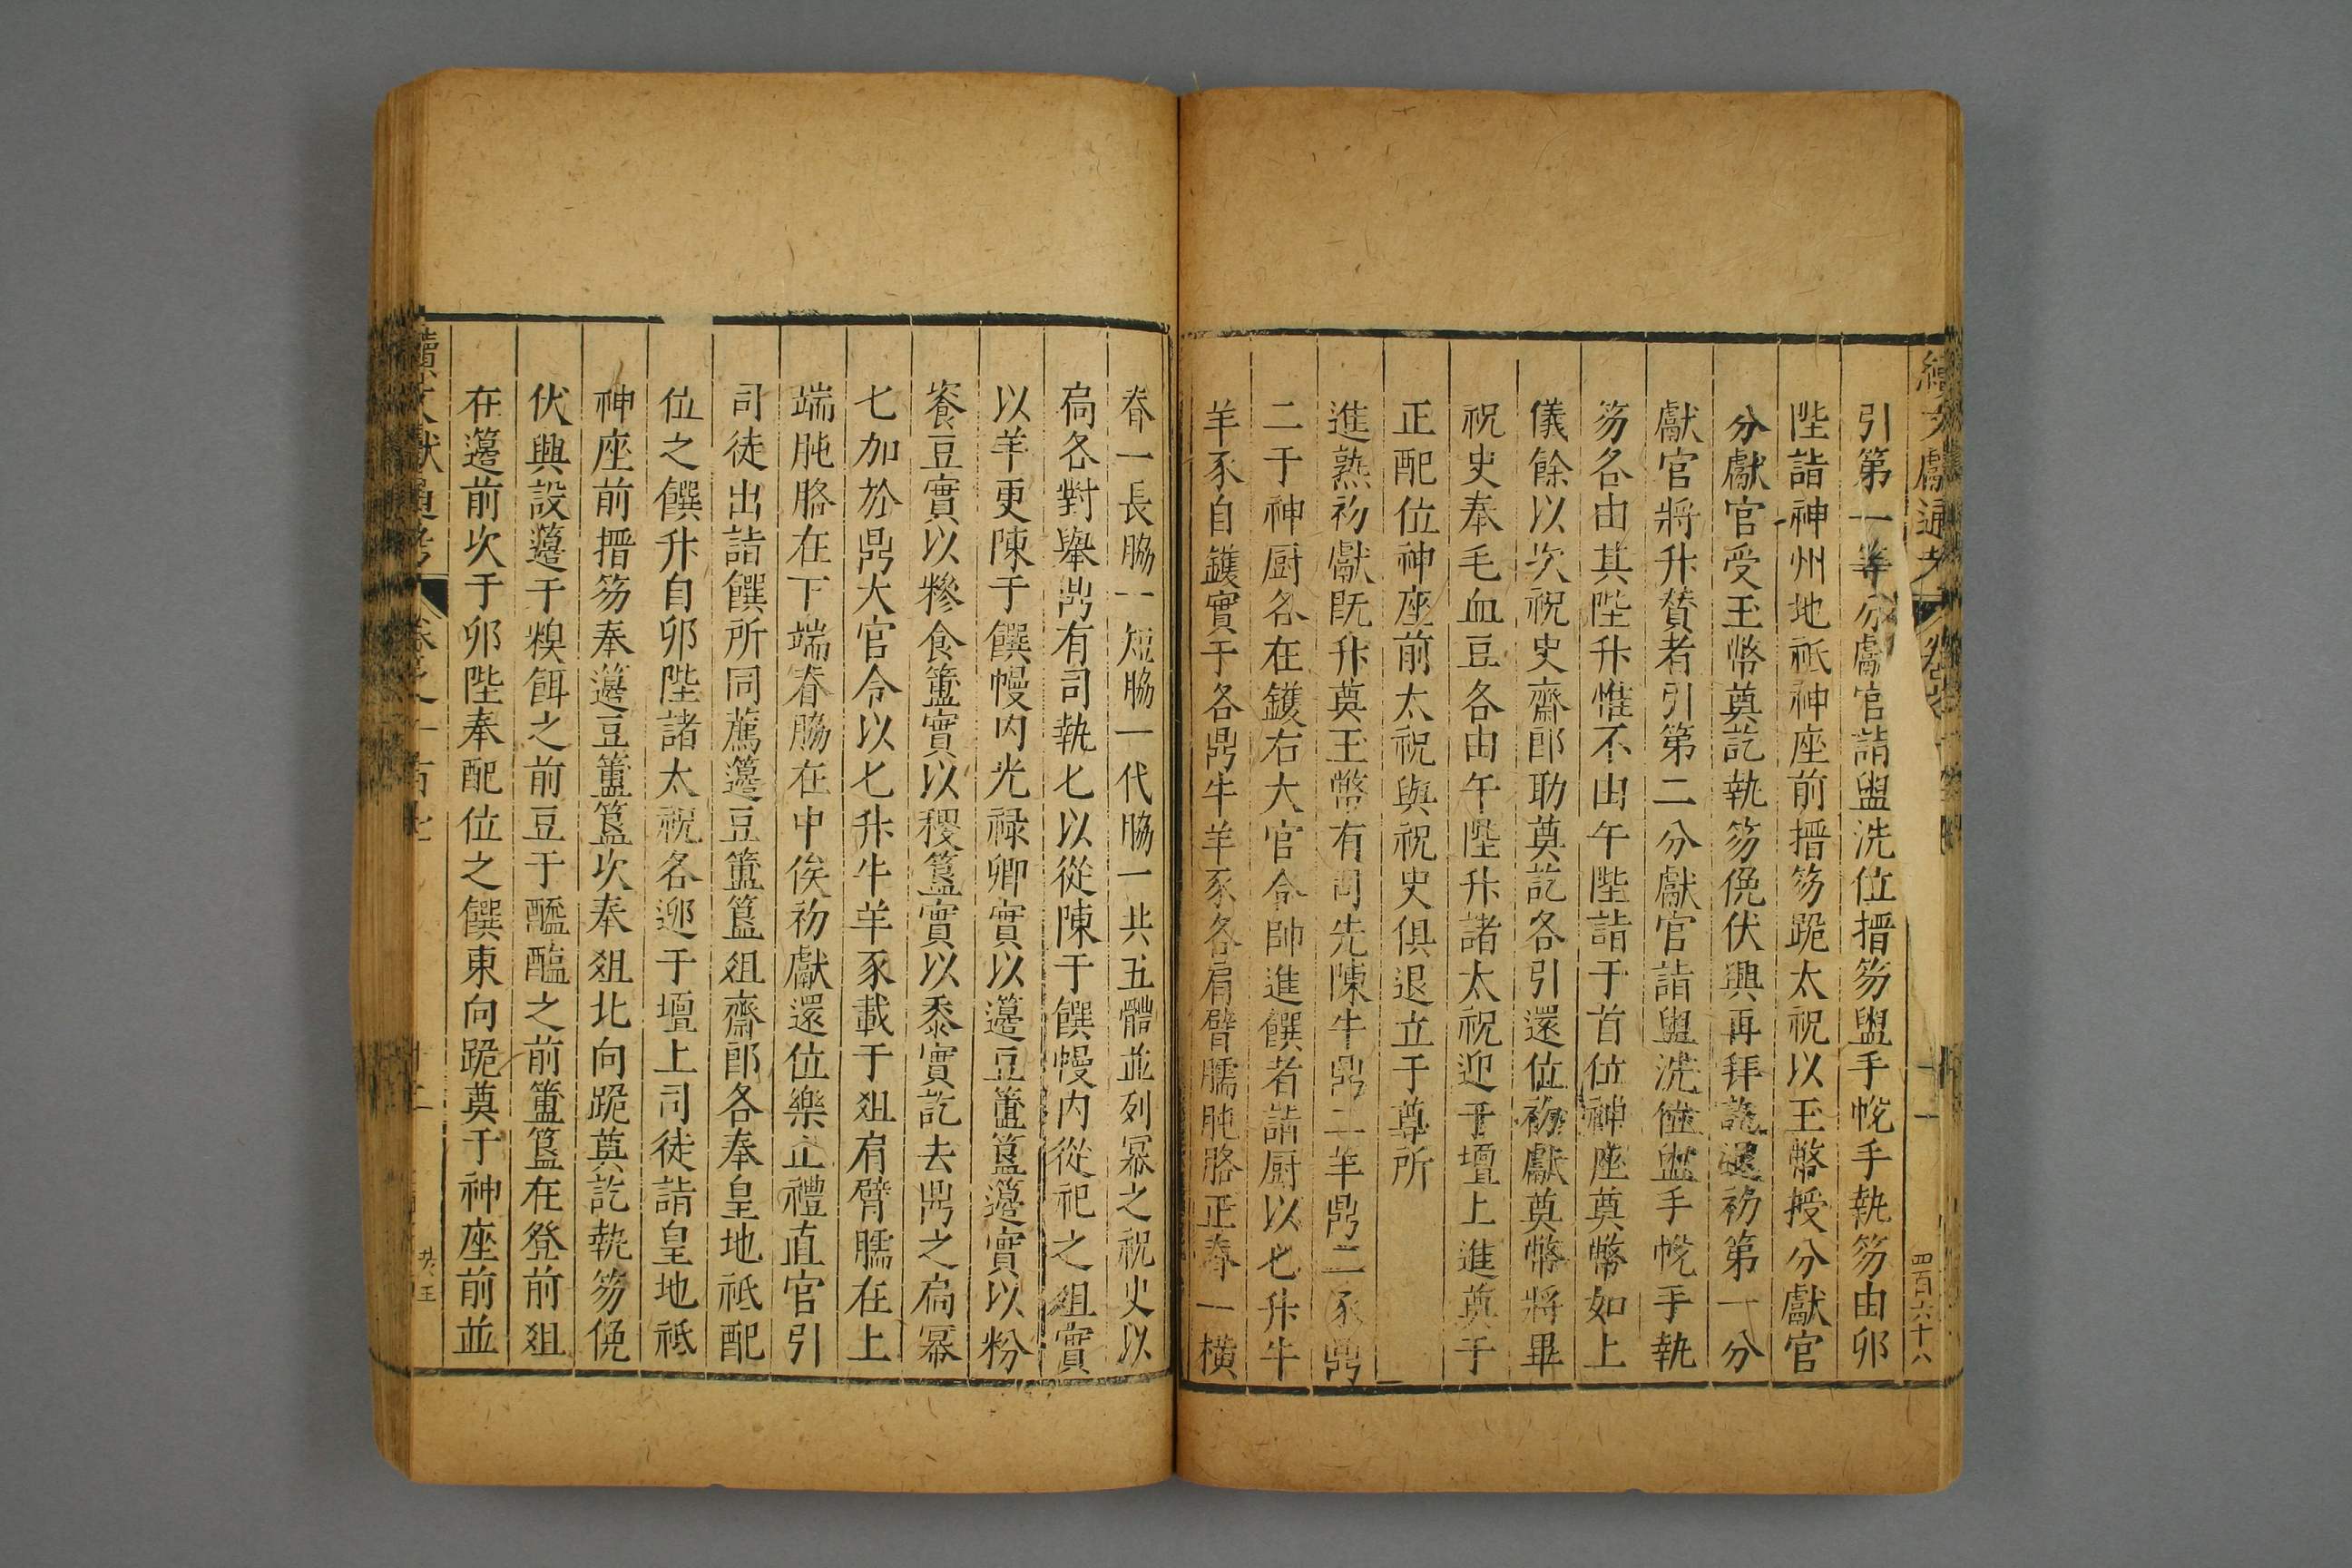 續文獻通考
四百六十八
引第一等分獻官詣盥洗位搢笏盥手帨手執笏由卯
陛詣神州地祇神座前搢笏跪太祝以玉幣授分獻官
分獻官受玉幣奠訖執笏俛伏興再拜訖退初第一分
獻官將升贊者引第二分獻官詣盥洗位盥手帨手執
笏各由其陛升惟不由午陛詣于首位神座奠幣如上
儀餘以次祝史齋郎助奠訖各引還位初獻奠幣將畢
祝史奉毛血豆各由午陛升諸太祝迎于壇上進奠于
正配位神座前太祝與祝史俱退立于尊所
進熟初獻既升奠玉幣有司先陳牛鼎二羊鼎二豕鼎
二于神厨各在鑊右大官令帥進饌者詣厨以匕升牛
羊豕自鑊實于各鼎牛羊豕各肩臂臑肫胳正脊一横
脊一長脇一短脇一代脇一共五體並列冪之祝史以
扃各對舉鼎有司執匕以從陳于饌幔内從祀之俎實
以羊更陳于饌幔内光禄卿實以籩豆簠簋籩實以粉
餈豆實以糝食簠實以稷簋實以黍實訖去鼎之扃冪
匕加於鼎大官令以匕升牛羊豕載于俎肩臂臑在上
端肫胳在下端脊脇在中俟初獻還位樂止禮直官引
司徒出詣饌所同薦籩豆簠簋俎齋郎各奉皇地祇配
位之饌升自卯陛諸太祝各迎于壇上司徒詣皇地祇
神座前搢笏奉籩豆簠簋次奉俎北向跪奠訖執笏俛
伏興設籩于糗餌之前豆于醓醢之前簠簋在登前俎
在籩前次于卯陛奉配位之饌東向跪奠于神座前並
續文獻通考 卷之一百七 十二